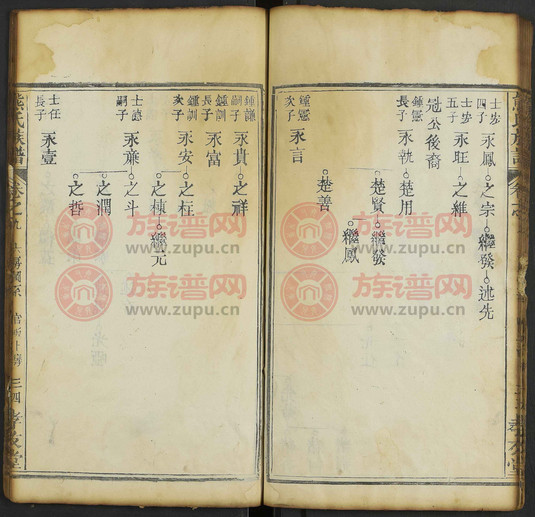 士步四子 永鳳 之宗 繼發 述先
士步五子 永旺 之維
冠公後裔
鍾靈長子 永執 楚用
楚賢 繼發
繼鳳
楚善
鍾靈次子 永言
鍾謙嗣子 永貴 之祥
鍾訓長子 永富
鍾訓次子 永安 之枉
之棟 繼元
士德嗣子 永廉 之斗
之潤
士任長子 永壹 之哲
熊氏族譜
三四 孝友堂
族谱网
www.zupu.cn
族谱网
www.zupu.cn
族谱网
www.zupu.cn
族谱网
www.zupu.cn